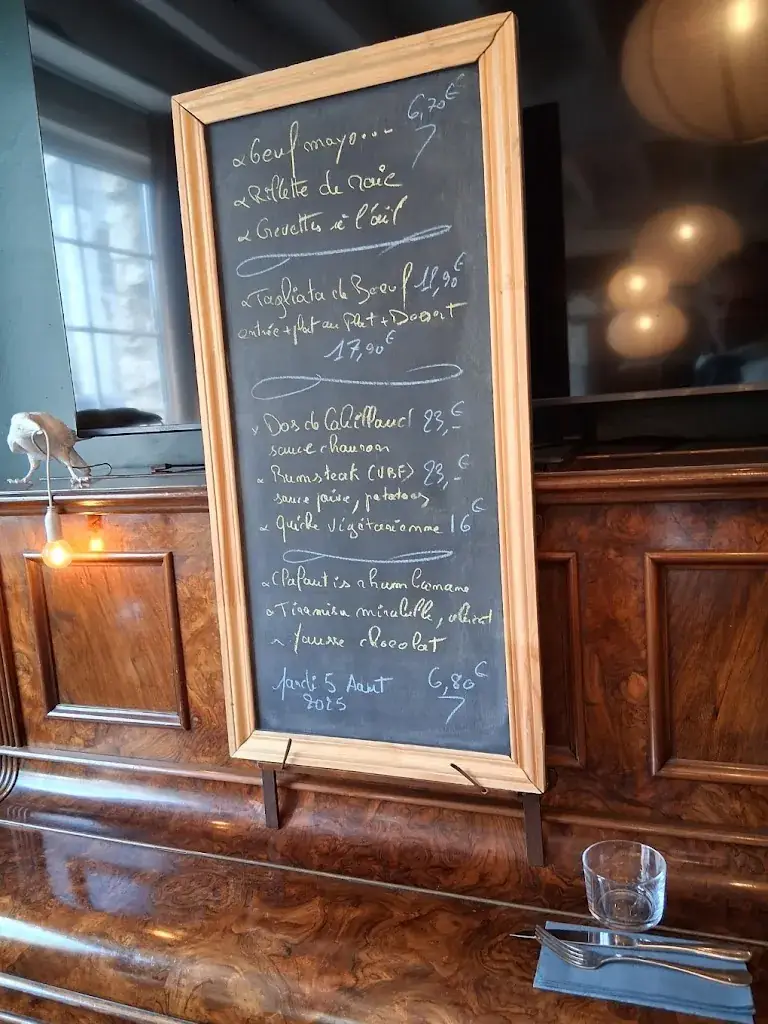 Oeuf mayo... 6,70€
Rillette de raie
Crevettes à l'ail
Tagliata de Boeuf 11,90€
entrée + plat ou Plat + Dessert
17,90€
Dos de Cabillaud 23,-€
sauce chauron
Rumsteak (VBF) 23,-€
sauce poivre, potatoes
Quiche végétarienne 16€
Clafoutis rhum banane
Tiramisu mirabelle,
Mousse chocolat
Mardi 5 Aout 6,80€
2025